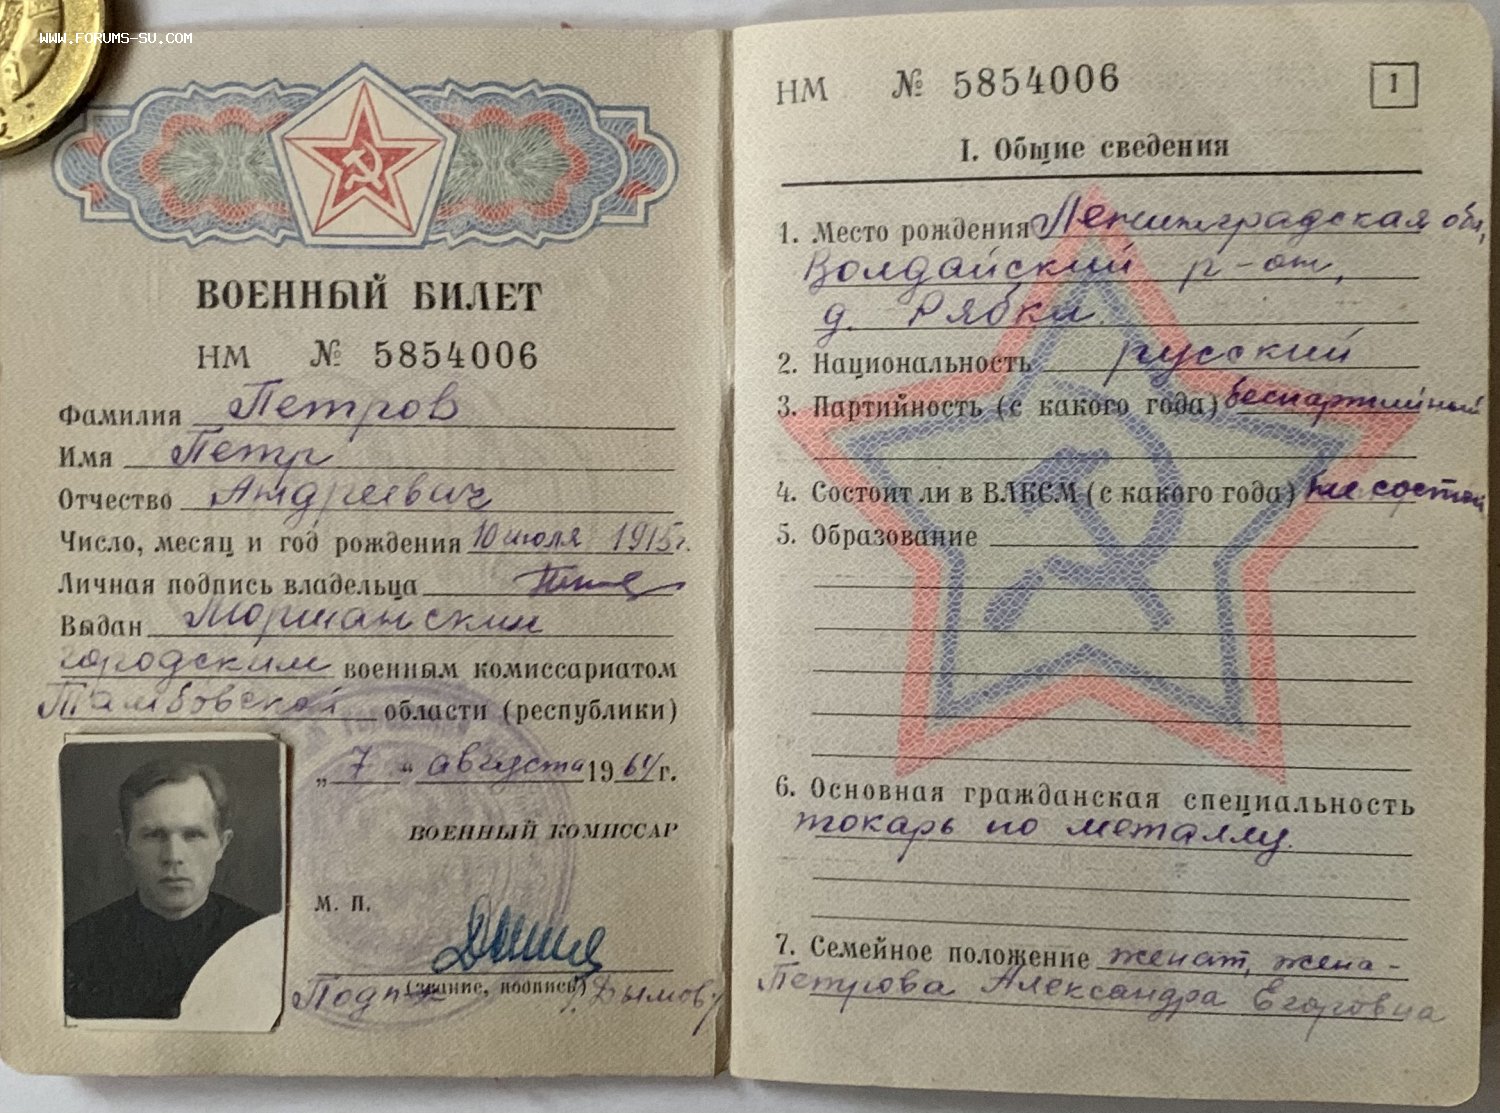 WWW.FORUMS-SU.COM
ВОЕННЫЙ БИЛЕТ
НМ № 5854006
Фамилия Петров
Имя Петр
Отчество Андреевич
Число, месяц и год рождения 10 июля 1915 г.
Личная подпись владельца
Выдан Моршанским
городским военным комиссариатом
Тамбовской области (республики)
„ 7 “ августа 1964 г.
ВОЕННЫЙ КОМИССАР
М. П.
(звание, подпись)
Подп-к /Дымов/
НМ № 5854006
1
I. Общие сведения
1. Место рождения Ленинградская обл,
Волдайский р-он,
д. Рябки
2. Национальность русский
3. Партийность (с какого года) беспартийный
4. Состоит ли в ВЛКСМ (с какого года) не состоял
5. Образование
6. Основная гражданская специальность
токарь по металлу.
7. Семейное положение женат, жена -
Петрова Александра Егоровна